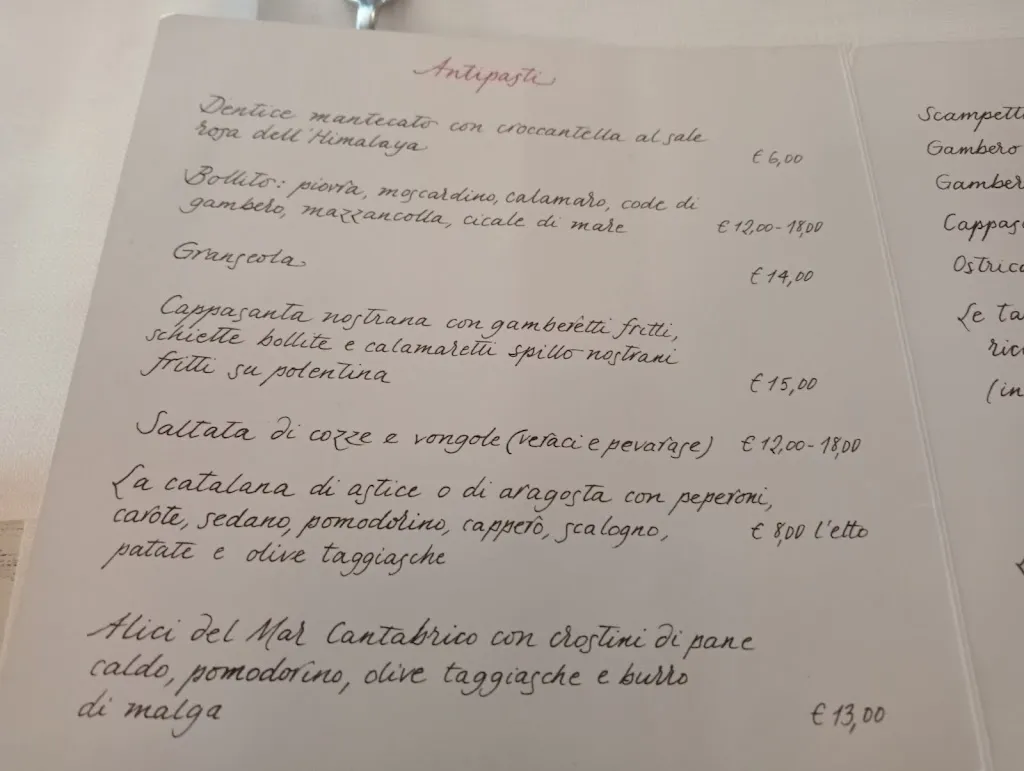 Antipasti
Dentice mantecato con croccantella al sale
rosa dell'Himalaya
€ 6,00
Bollito: piovra, moscardino, calamaro, code di
gambero, mazzancolla, cicale di mare
€ 12,00-18,00
Granseola
€ 14,00
Cappasanta nostrana con gamberetti fritti,
schiette bollite e calamaretti spillo nostrani
fritti su polentina
€ 15,00
Saltata di cozze e vongole (veraci e pevarase) € 12,00-18,00
La catalana di astice o di aragosta con peperoni,
carote, sedano, pomodorino, cappero, scalogno,
€ 8,00 l'etto
patate e olive taggiasche
Alici del Mar Cantabrico con crostini di pane
caldo, pomodorino, olive taggiasche e burro
di malga
€ 13,00
Scampetti
Gambero
Gamber
Cappas
Ostric
Le ta
ric
(in